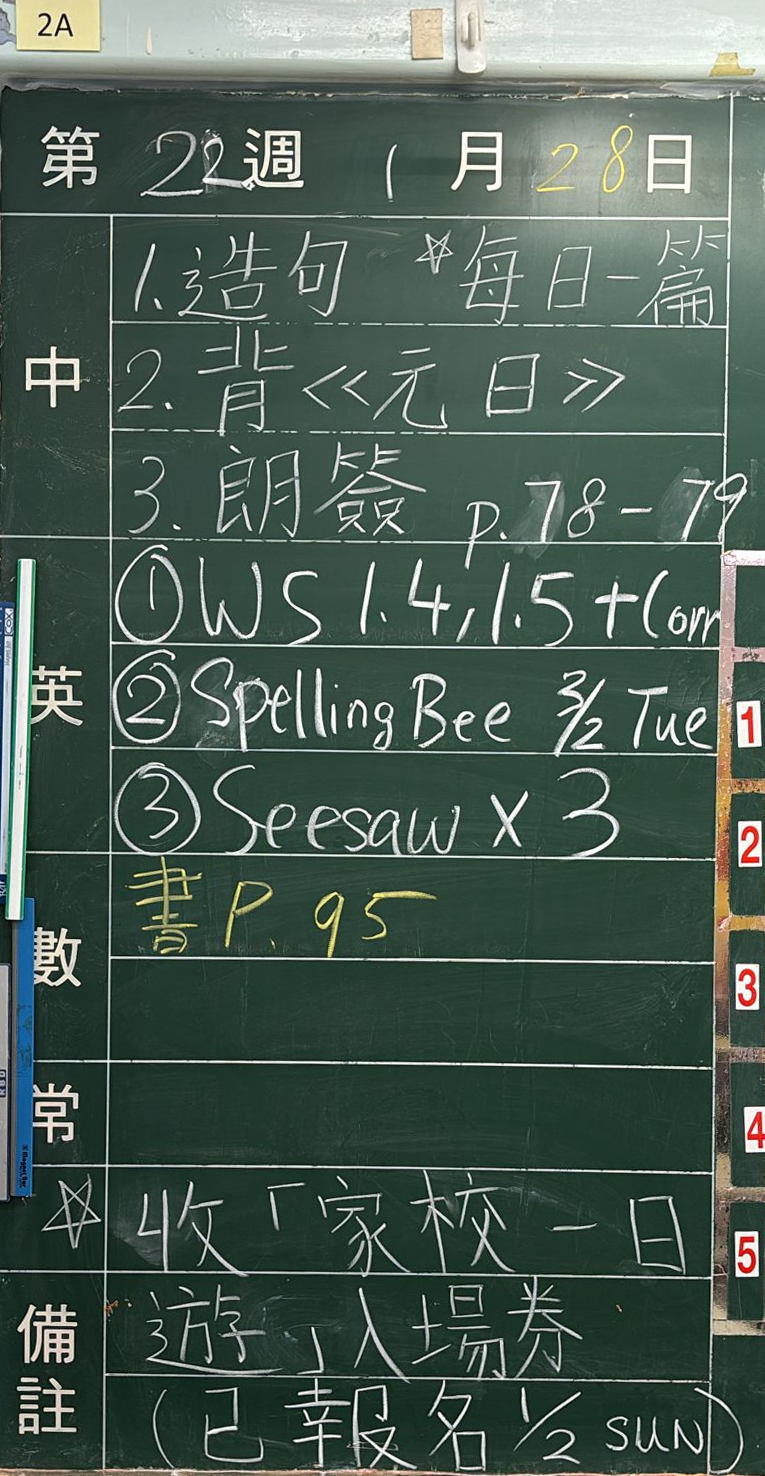 2A
第 22 週 1 月 28 日
中
1. 造句 ☆每日一篇
2. 背<<元日>>
3. 朗簽 p.78-79
英
① WS 1.4, 1.5 + Corr
② Spelling Bee 3/2 Tue
③ Seesaw x 3
數
書 P. 95
常
☆ 收「家校一日
備註
遊」入場券
(已報名 1/2 SUN)
1
2
3
4
5